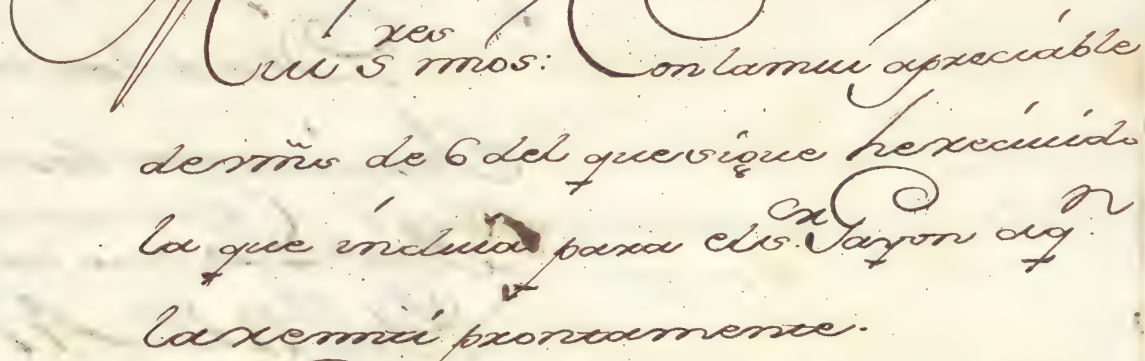 Mui S.res mios: Con la mui apreciable
de vms de 6 del que sigue he recivido
la que incluia para el S.or Payon aq.n
la remiti prontamente.